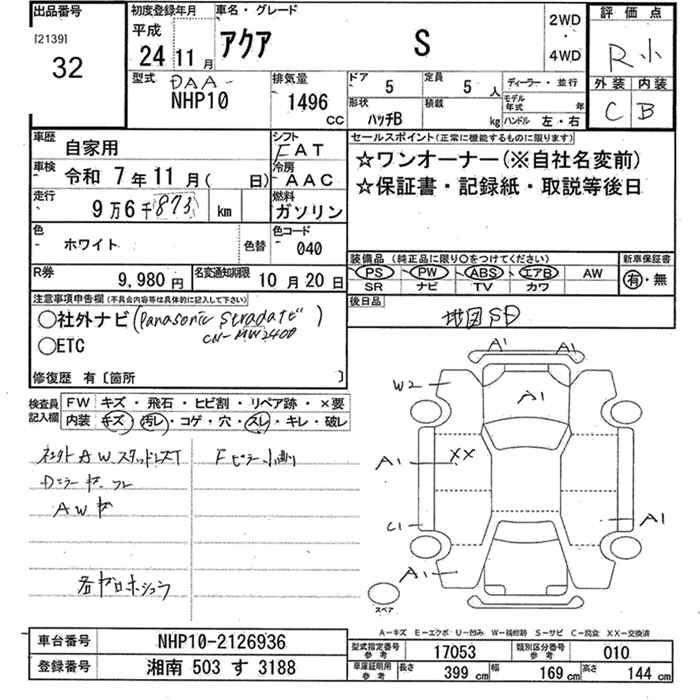 出品番号
[2139]
32
初度登録年月
平成
24 11 月
車名・グレード
アクア S
2WD
・
4WD
評価点
R 小
外装 内装
C B
型式
DAA-
NHP10
排気量
1496 cc
ドア 5
定員 5 人
形状 ハッチB
積載 kg
ディーラー・並行
モデル年式 年
ハンドル 左・右
車歴 自家用
シフト FAT
車検 令和 7 年 11 月( 日)
冷房 AAC
走行 9 万 6 千 873 km
燃料 ガソリン
色 ホワイト 色替
色コード 040
R券 9,980 円
名変通知期限 10 月 20 日
セールスポイント(正常に機能するものに限ります)
☆ワンオーナー(※自社名変前)
☆保証書・記録紙・取説等後日
装備品 (純正品に限り○をつけてください)
PS PW ABS エアB AW
SR ナビ TV カワ
新車保証書
有・無
後日品
地図SD
注意事項申告欄(不具合内容等は具体的に記入して下さい)
○社外ナビ(Panasonic Stradaナビ)
CN-MW240D
○ETC
修復歴 有〔箇所 〕
検査員記入欄
FW キズ・飛石・ヒビ割・リペア跡・×要
内装 キズ・汚レ・コゲ・穴・スレ・キレ・破レ
AW
Fピラー
AW
A1 A1
W2
A1
A1
XX
C1
A1
A1
スペア
A-キズ E-エクボ U-凹ミ W-補修跡 S-サビ C-腐食 XX-交換済
車台番号 NHP10-2126936
登録番号 湘南 503 す 3188
型式指定番号 参考 17053
類別区分番号 参考 010
車庫証明用 参考 長さ 399 cm 幅 169 cm 高さ 144 cm